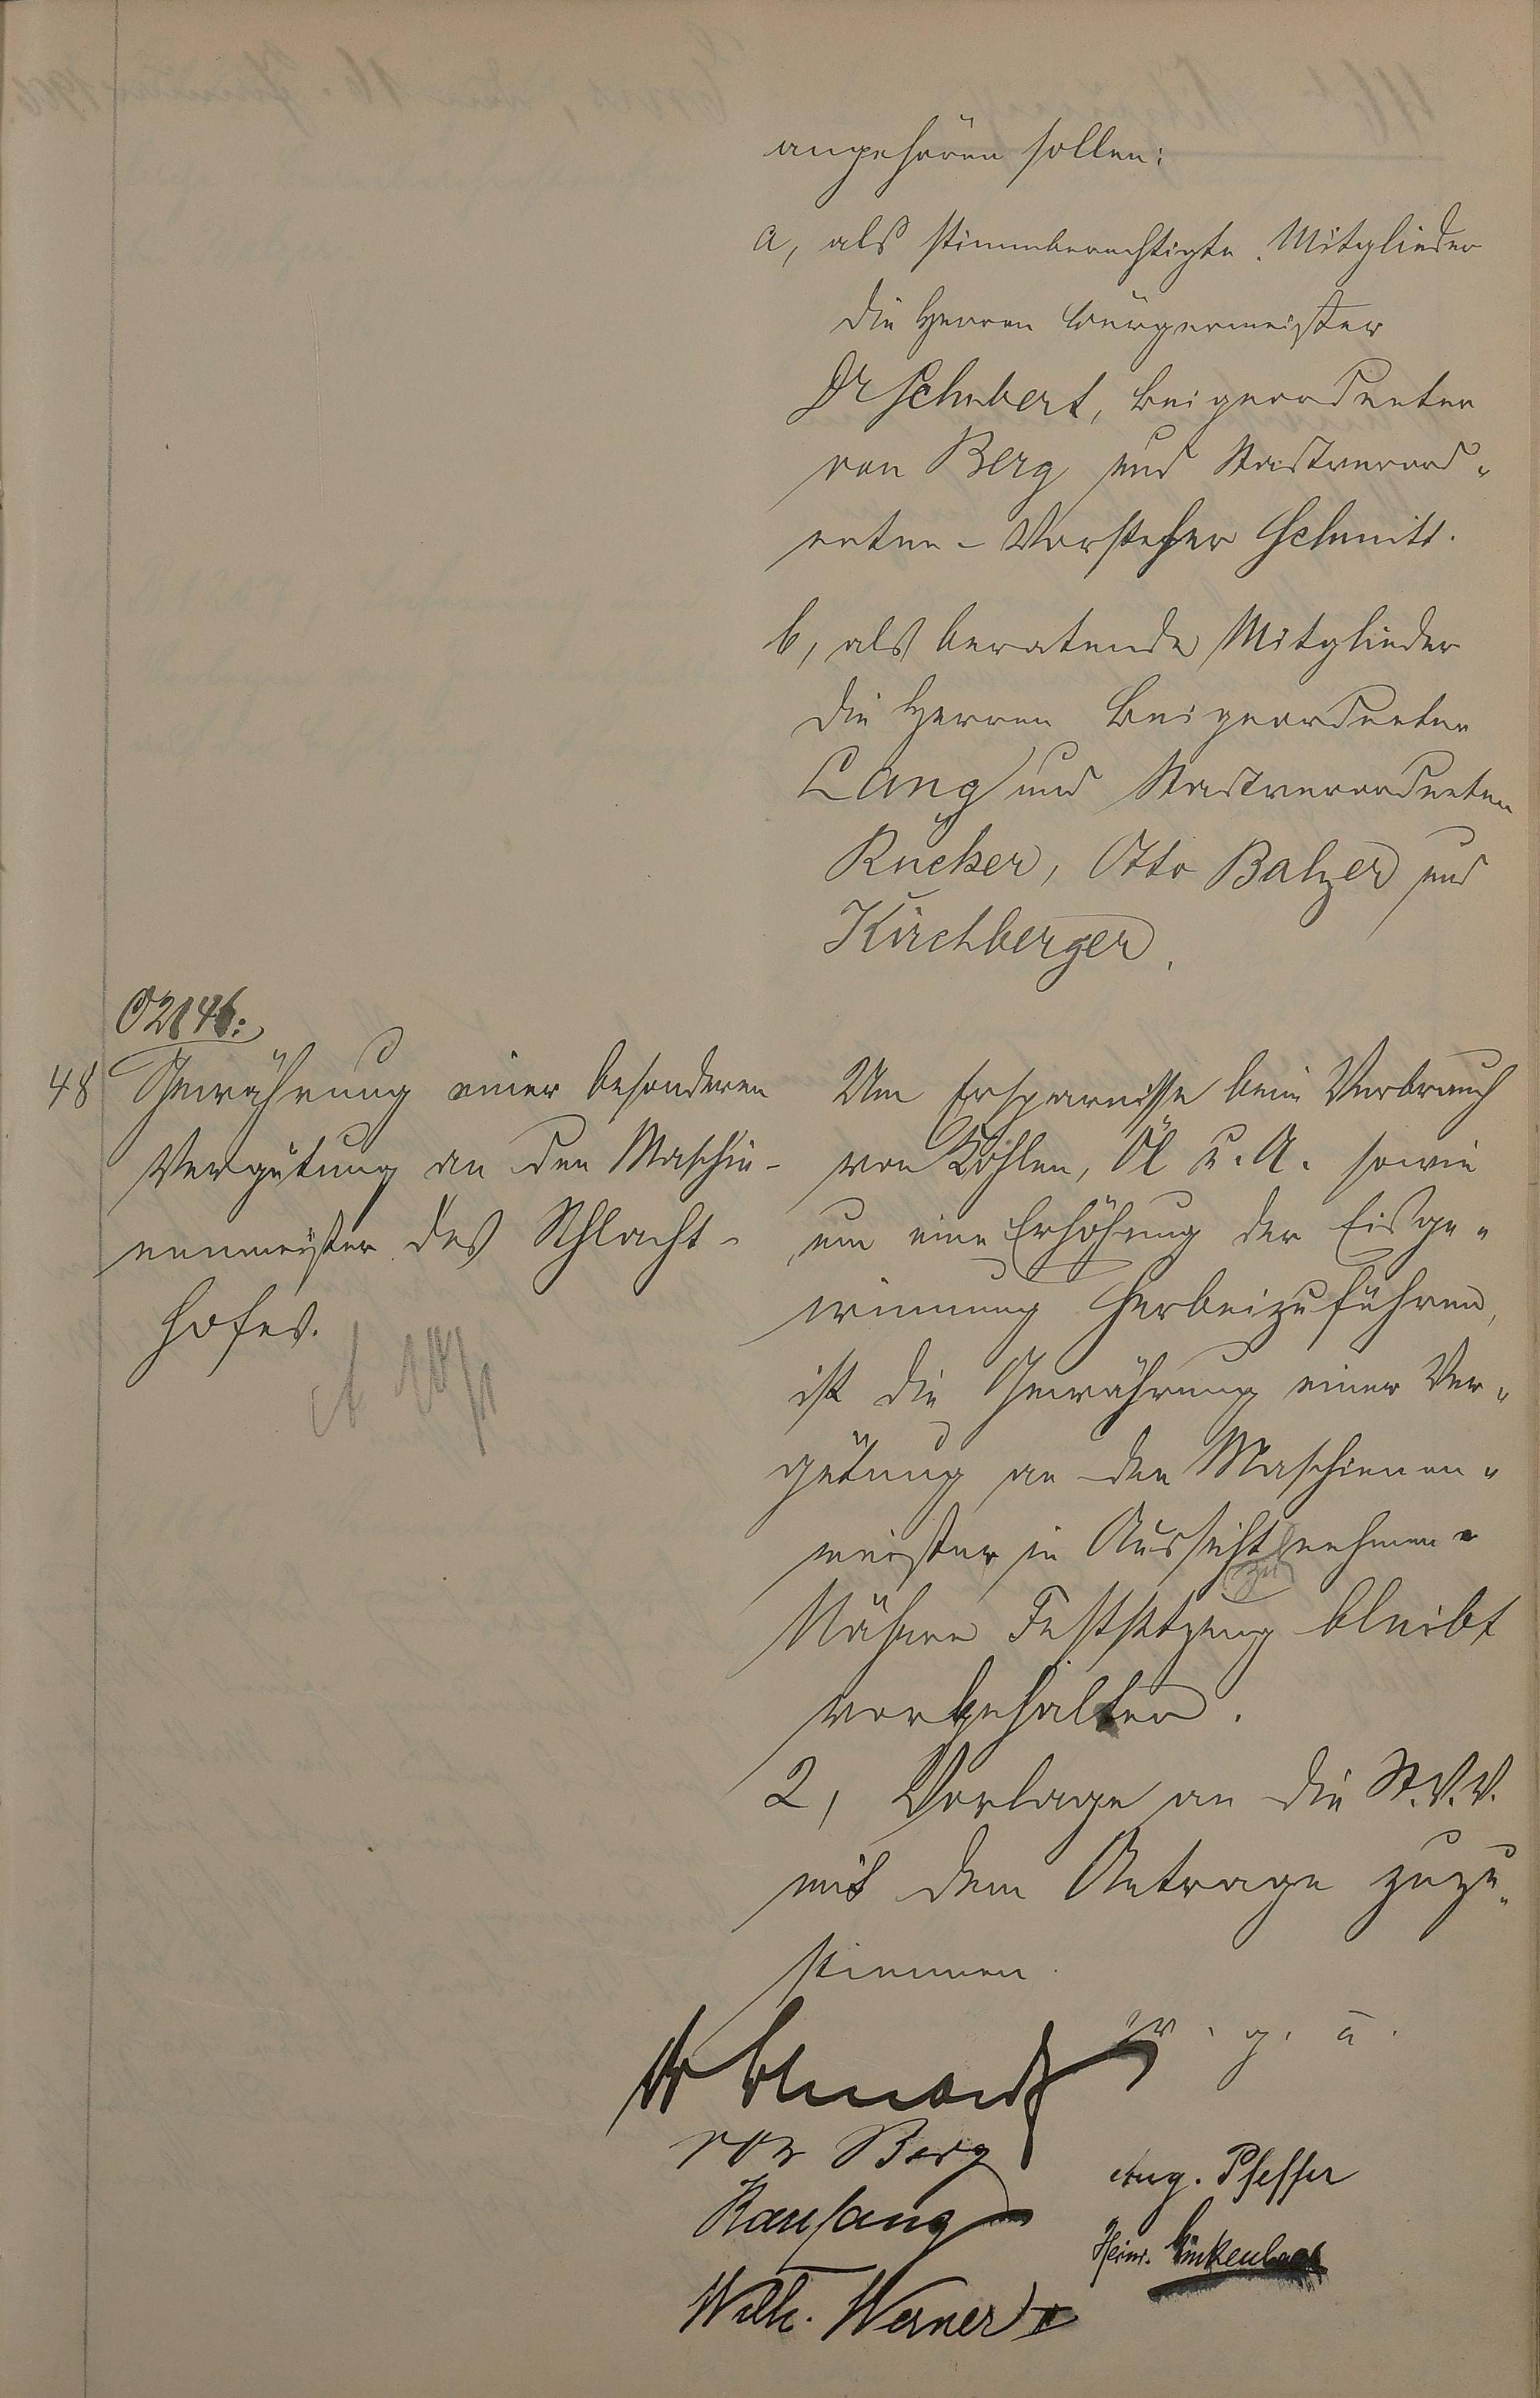 angehören sollen:
a, als stimmberechtigte Mitglieder
die Herren Bürgermeister
Dr Schubert, Beigeordneter
von Berg und Stadtverord-
neten-Vorsteher Schmitt.
b, als beratende Mitglieder
die Herren Beigeordneter
Lang und Stadtverordneten
Rücker, Otto Balzer und
Kirchberger.
48 Gewährung einer besonderen
Vergütung an den Maschi-
nenmeister des Schlacht-
hofes.
Um Ersparnisse beim Verbrauch
von Kohlen, Öl u. A. sowie
um eine Erhöhung der Eisge-
winnung herbeizuführen,
ist die Gewährung einer Ver-
gütung an den Maschinen-
meister in Aussicht zu nehmen.
Nähere Festsetzung bleibt
vorbehalten.
2, Vorlage an die St.V.V.
mit dem Antrage zuzu-
stimmen.
v. g. u.
von Berg
Aug. Pfeffer
Karl Lang
Heinr. Linkenbach
Wilh. Werner